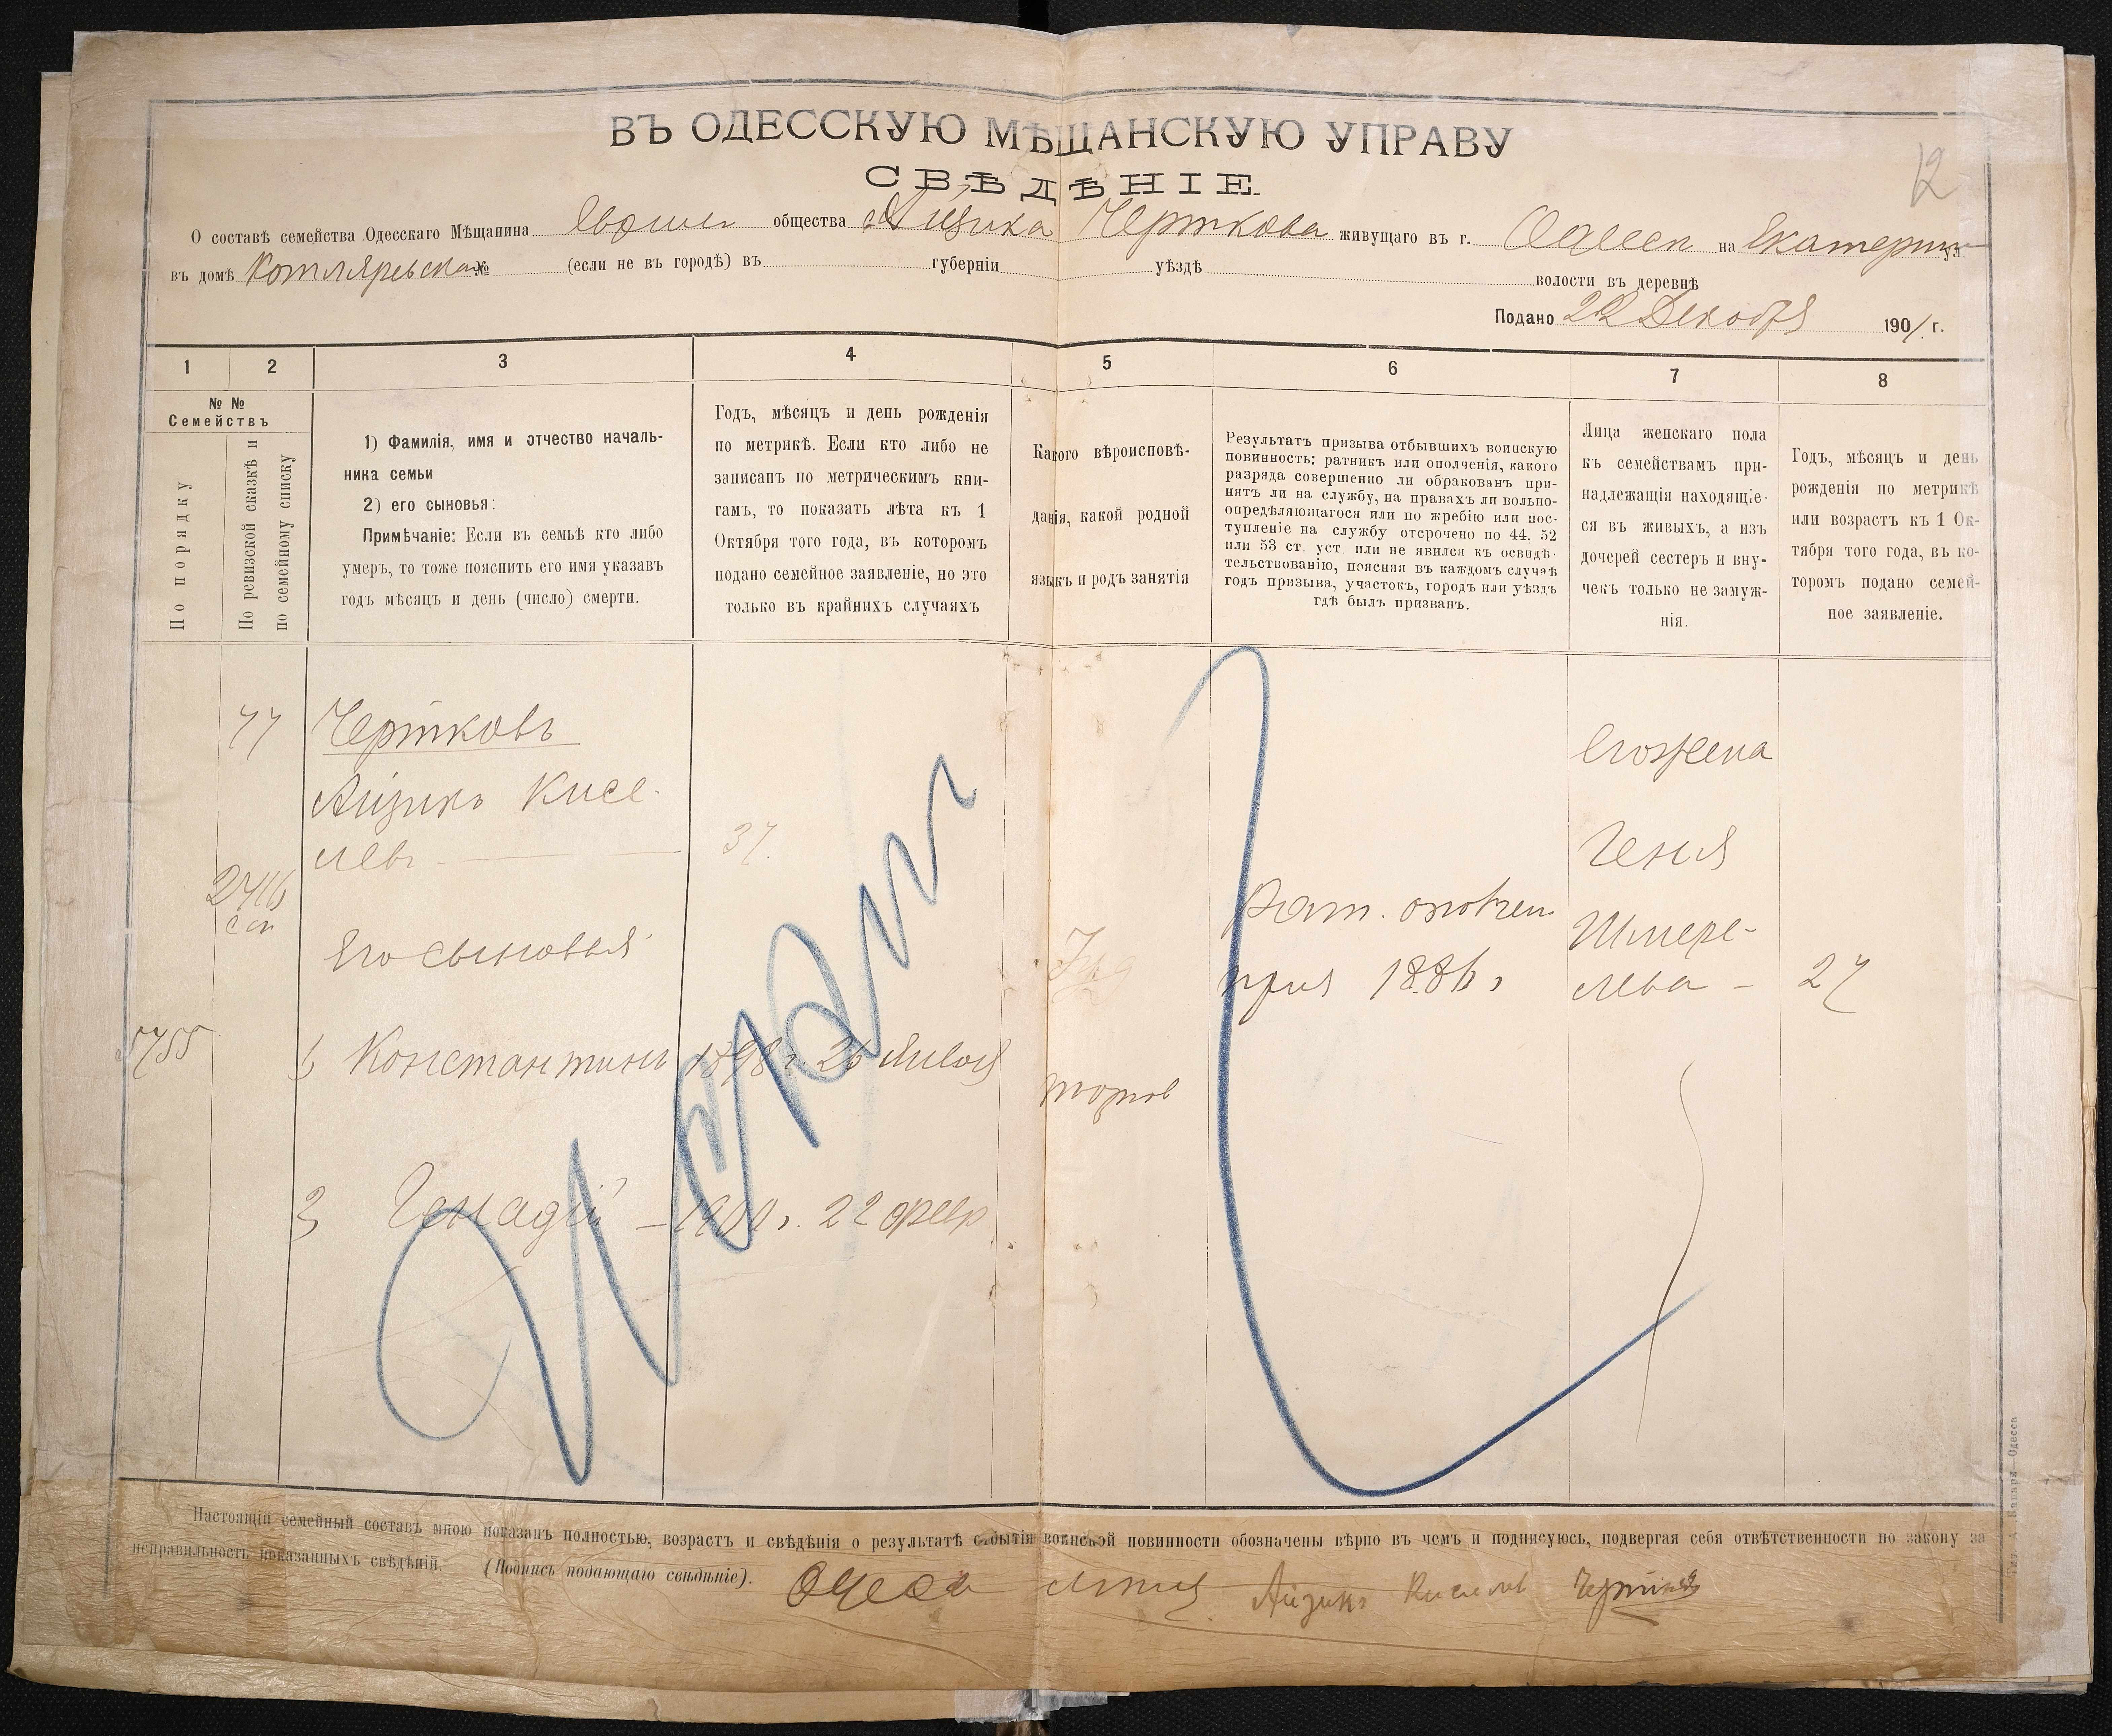 12
ВЪ ОДЕССКУЮ МѢЩАНСКУЮ УПРАВУ
СВѢДѢНІЕ.
О составѣ семейства Одесскаго Мѣщанина общества Айзика Черткова живущаго въ г. Одесси на Екатерин ул
въ домѣ Котляревска № (если не въ городѣ) въ губерніи уѣздѣ волости въ деревнѣ
Подано 22 Декабря 1901 г.
1 2 3 4 5 6 7 8
№ №
Семействъ
По порядку
По ревизской сказкѣ и
по семейному списку
1) Фамилія, имя и отчество началь-
ника семьи
2) его сыновья:
Примѣчаніе: Если въ семьѣ кто либо
умеръ, то тоже пояснить его имя указавъ
годъ мѣсяцъ и день (число) смерти.
Годъ, мѣсяцъ и день рожденія
по метрикѣ. Если кто либо не
записанъ по метрическимъ кни-
гамъ, то показать лѣта къ 1
Октября того года, въ которомъ
подано семейное заявленіе, но это
только въ крайнихъ случаяхъ
Какого вѣроисповѣ-
данія, какой родной
языкъ и родъ занятія
Результатъ призыва отбывшихъ воинскую
повинность: ратникъ или ополченія, какого
разряда совершенно ли обракованъ при-
нятъ ли на службу, на правахъ ли вольно-
опредѣляющагося или по жребію или пос-
тупленіе на службу отсрочено по 44, 52
или 53 ст. уст. или не явился къ освидѣ-
тельствованію, поясняя въ каждомъ случаѣ
годъ призыва, участокъ, городъ или уѣздъ
гдѣ былъ призванъ.
Лица женскаго пола
къ семействамъ при-
надлежащія находящіе-
ся въ живыхъ, а изъ
дочерей сестеръ и вну-
чекъ только не замуж-
нія.
Годъ, мѣсяцъ и день
рожденія по метрикѣ
или возрастъ къ 1 Ок-
тября того года, въ ко-
торомъ подано семей-
ное заявленіе.
77 Чертковъ
Айзикъ Кисе-
левъ 37.
Его сыновья
1 Константинъ 1898 г. 26
торгов
2 Генадій – 1900 г. 22 февр
Рат. ополчен
приз 1886 г
Его жена
Геня
Шмере-
лева – 27
5755
Настоящій семейный составъ мною показанъ полностью, возрастъ и свѣдѣнія о результатѣ отбытія воинской повинности обозначены вѣрно въ чемъ и подписуюсь, подвергая себя отвѣтственности по закону за
неправильность показанныхъ свѣдѣній. (Подпись подающаго свѣдѣніе). Айзикъ Киселев Чертковъ